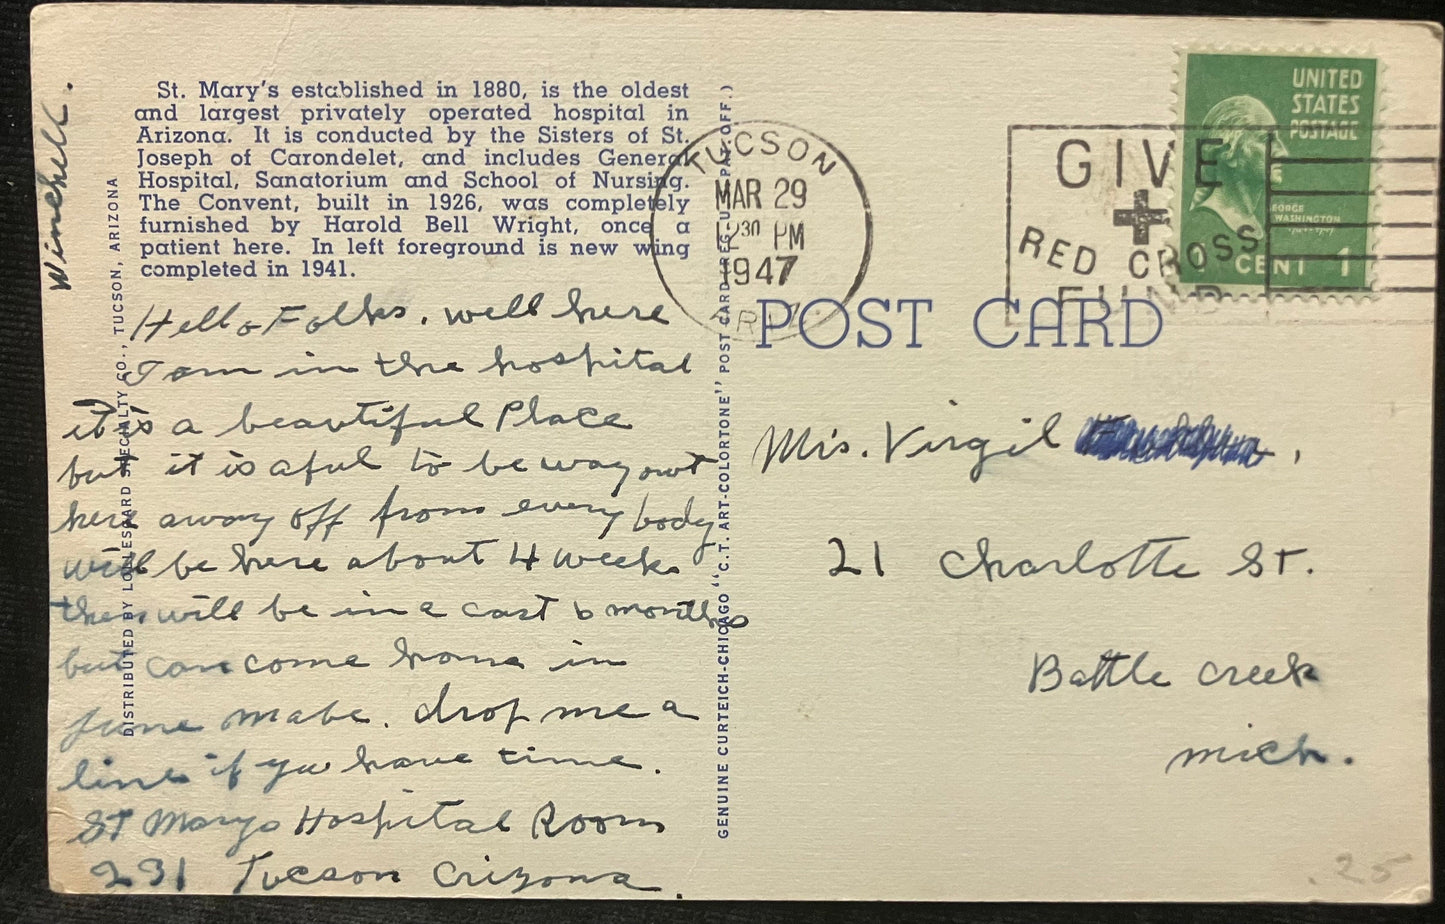 St. Mary's established in 1880, is the oldest
and largest privately operated hospital in
Arizona. It is conducted by the Sisters of St.
Joseph of Carondelet, and includes General
Hospital, Sanatorium and School of Nursing.
The Convent, built in 1926, was completely
furnished by Harold Bell Wright, once a
patient here. In left foreground is new wing
completed in 1941.
Hello Folks. well here
I am in the hospital
it is a beautiful Place
but it is aful to be way out
here away off from every body
will be here about 4 weeks
then will be in a cast 6 months
but can come home in
June mabe. drop me a
line if you have time.
St Marys Hospital Room
231 Tucson Arizona.
Winchell.
DISTRIBUTED BY LOLLESGARD SPECIALTY CO., TUCSON, ARIZONA
GENUINE CURTEICH-CHICAGO "C.T. ART-COLORTONE" POST CARD (REG. U.S. PAT. OFF.)
TUCSON
MAR 29
12 30 PM
1947
ARIZ.
GIVE
RED CROSS
FUND
UNITED
STATES
POSTAGE
GEORGE
WASHINGTON
1 CENT 1
POST CARD
Mrs. Virgil
21 Charlotte St.
Battle Creek
Mich.
.25